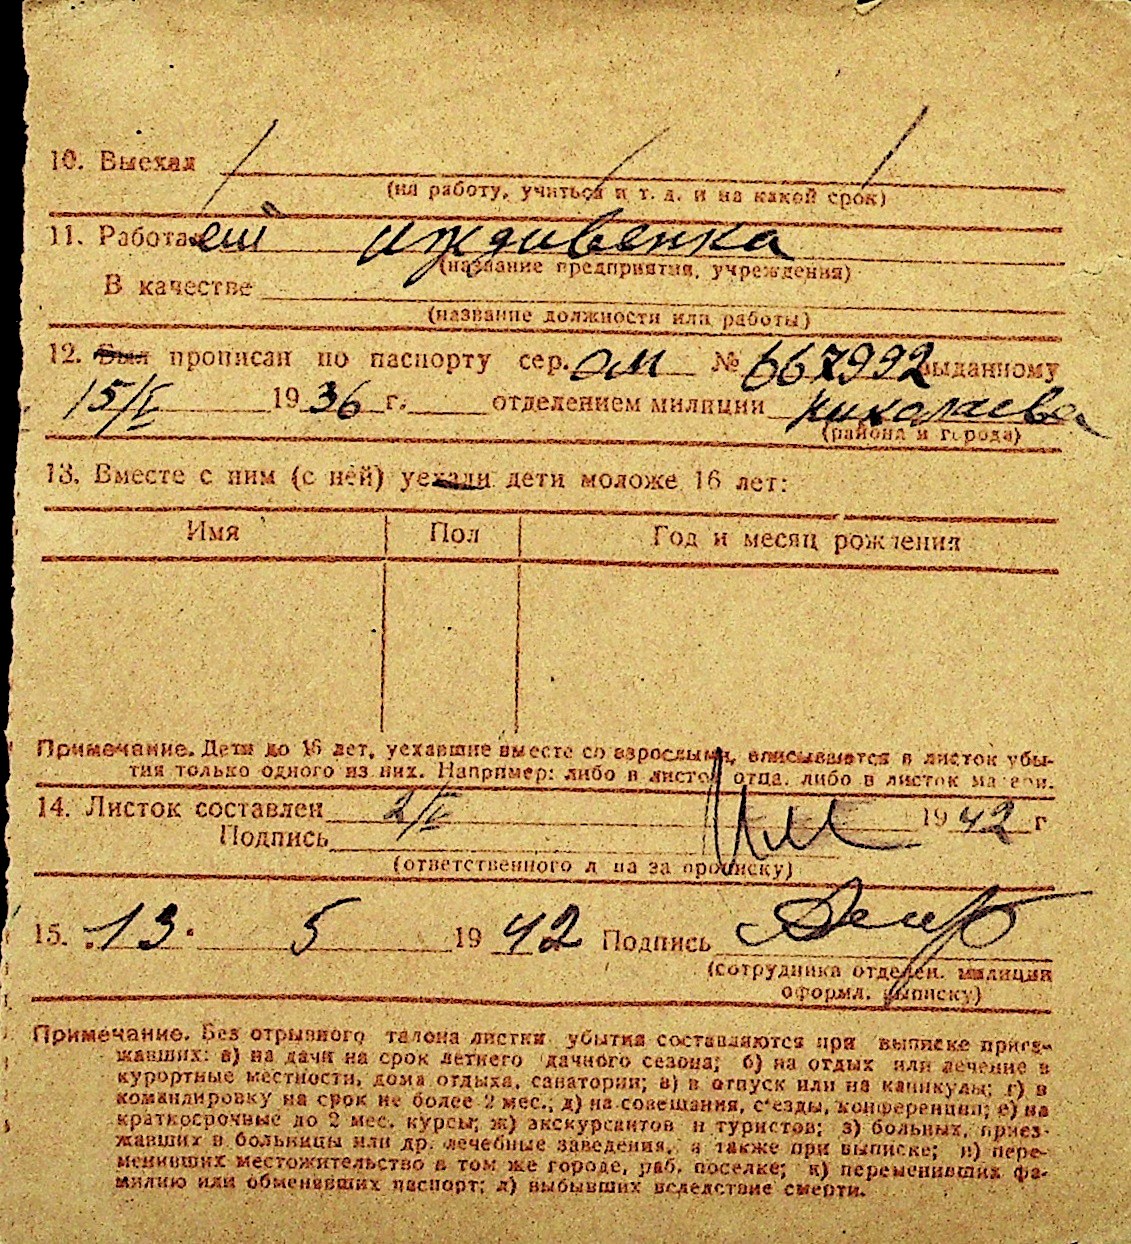 10. Выехал
(на работу, учиться и т. д. и на какой срок)
11. Работает иждивенка
(название предприятия, учреждения)
В качестве
(название должности или работы)
12. Был прописан по паспорту сер. ОМ № 667992 выданному
15/I 1936 г. отделением милиции Николаева
(района и города)
13. Вместе с ним (с ней) уехали дети моложе 16 лет:
Имя Пол Год и месяц рождения
Примечание. Дети до 16 лет, уехавшие вместе со взрослыми, вписываются в листок убы-
тия только одного из них. Например: либо в листок отца, либо в листок матери.
14. Листок составлен 2/V 1942 г
Подпись
(ответственного лица за прописку)
15. 13. 5 1942 Подпись
(сотрудника отделен. милиции
оформл. выписку)
Примечание. Без отрывного талона листки убытия составляются при выписке приез-
жавших: а) на дачи на срок летнего дачного сезона; б) на отдых или лечение в
курортные местности, дома отдыха, санатории; в) в отпуск или на каникулы; г) в
командировку на срок не более 2 мес.; д) на совещания, съезды, конференции; е) на
краткосрочные до 2 мес. курсы; ж) экскурсантов и туристов; з) больных, приез-
жавших в больницы или др. лечебные заведения, а также при выписке; и) пере-
менивших местожительство в том же городе, раб. поселке; к) переменивших фа-
милию или обменявших паспорт; л) выбывших вследствие смерти.